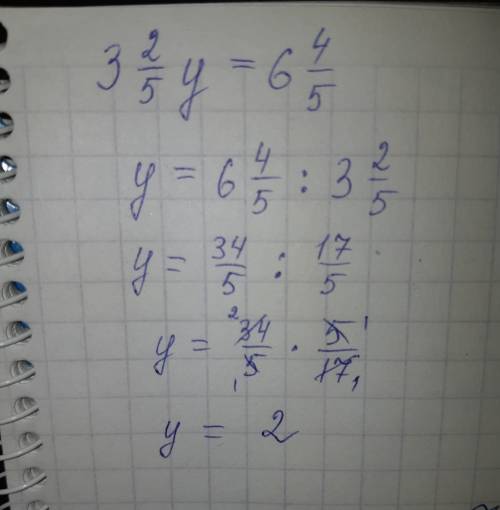 3 2/5 y = 6 4/5
y = 6 4/5 : 3 2/5
y = 34/5 : 17/5
y = 34/5 · 5/17
y = 2